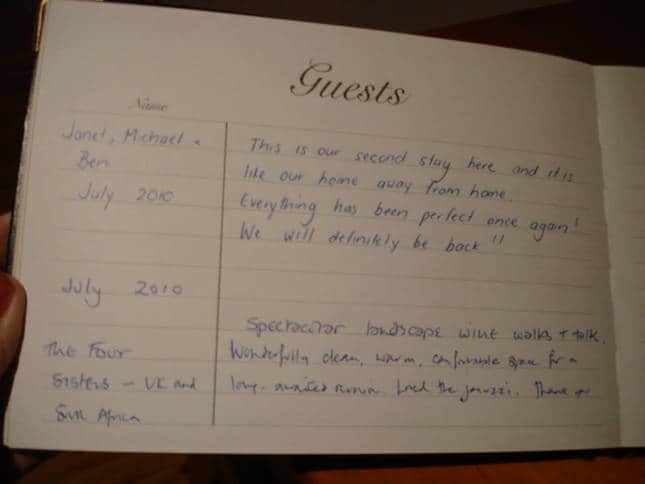 Guests
Name
Janet, Michael &
Ben
July 2010
This is our second stay here and it is
like our home away from home.
Everything has been perfect once again!
We will definitely be back!!
July 2010
The Four
Sisters - UK and
Africa
Spectacular landscape wine walks + talk.
Wonderfully clean, warm, comfortable space for a
long-awaited reunion. the jacuzzi. Thank